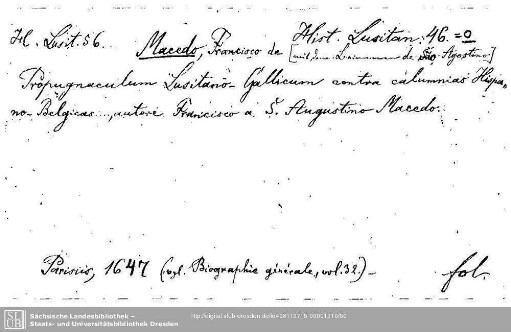 H. Lusit. 56. Hist. Lusitan. 46. = 0
Macedo, Francisco de [mit dem de São Agostino]
Propugnaculum Lusitano-Gallicum contra calumnias Hispa-
no-Belgicas..., autore Francisco a S. Augustino Macedo.
Parisiis, 1647 (vgl. Biographie générale, vol. 32.) - fol.
SLUB
Sächsische Landesbibliothek –
Staats- und Universitätsbibliothek Dresden